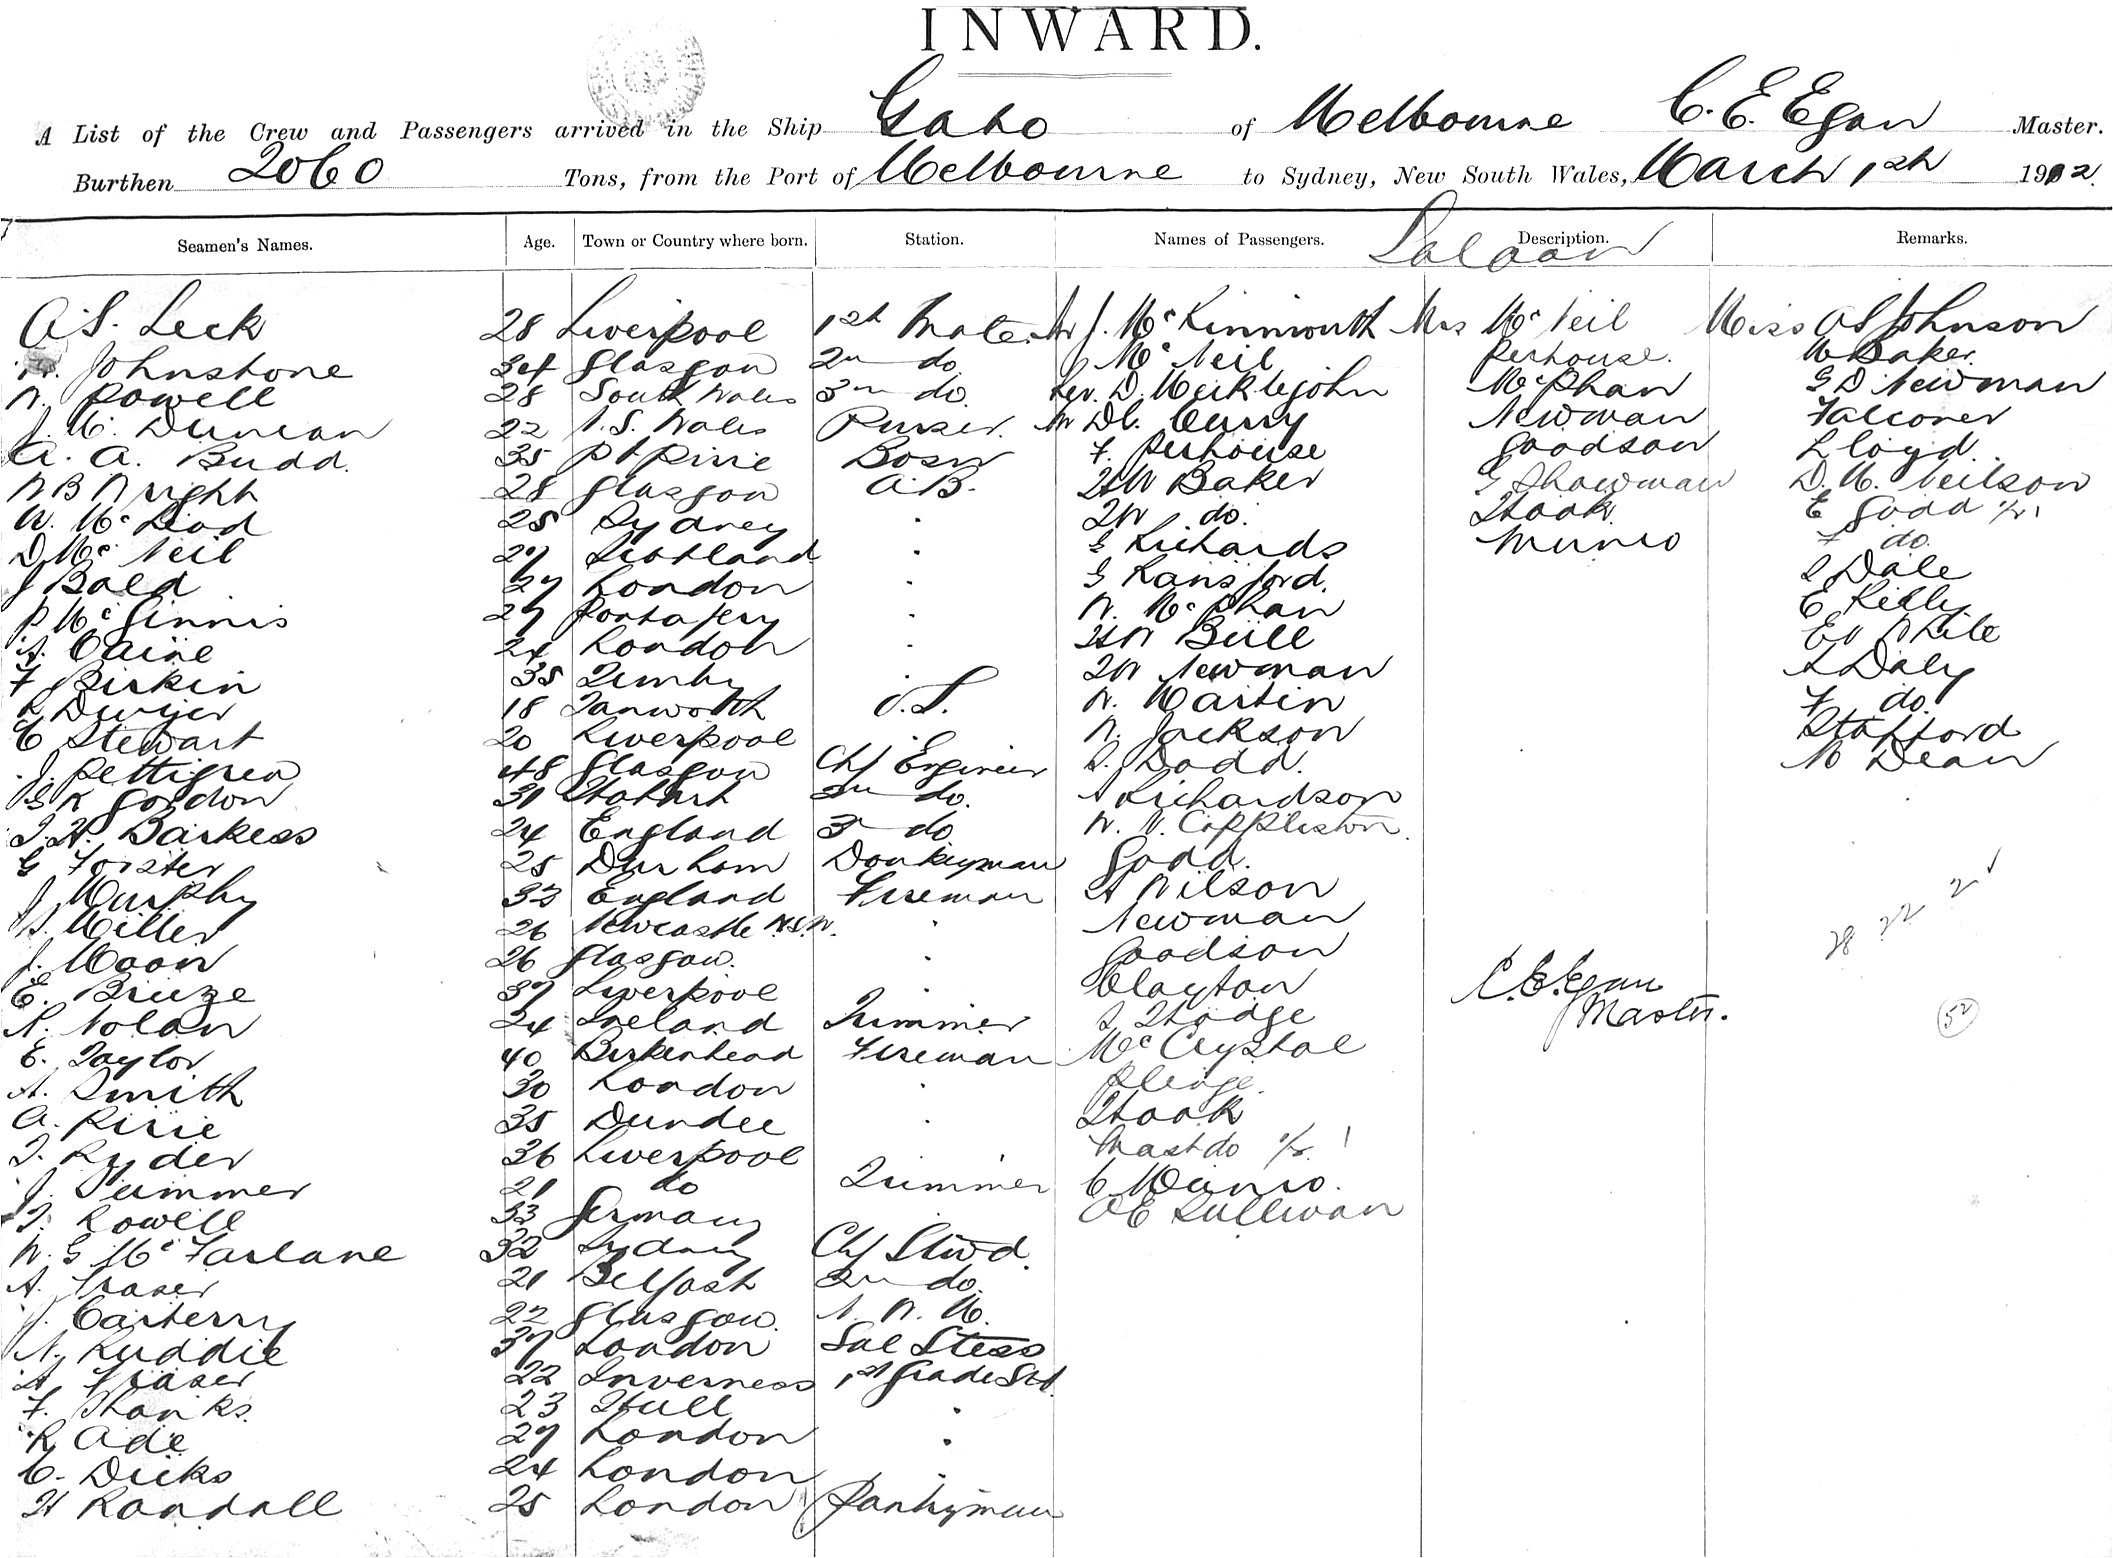 INWARD.
A List of the Crew and Passengers arrived in the Ship Gabo of Melbourne C. E. Egan Master.
Burthen 2060 Tons, from the Port of Melbourne to Sydney, New South Wales, March 1st 1902.
Seamen's Names. Age. Town or Country where born. Station. Names of Passengers. Description. Remarks.
Saloon
A. S. Leck 28 Liverpool 1st Mate Mr J. McKinmouth Mrs McNeil Miss Johnson
Johnstone 34 Glasgow 2n do. McNeil Perhouse. Baker
W. Powell 28 South Wales 3rn do. Rev. D. Meiklejohn McPhan G D Newman
J. M. Duncan 22 N. S. Wales Purser. Curry Newman Falconer
A. A. Budd. 35 Pt Pirie Bosn F. Perhouse Goodson Lloyd.
W B Wright 28 Glasgow A.B. HW Baker G Showman D. M. Neilson
W. McLeod 28 Sydney " JW do. Hook E Godd
D McNeil 27 Scotland " G Richards Munro F do.
J Bald 27 London " G Ransford. S Dale
P McGinnis 27 Portaferry " W. McPhan E Kelly
A. Caine 24 London " HW Bull White
F Birkin 38 " JW Newman S Daly
L Dwyer 18 Tamworth O.S. W. Martin F do.
C Stewart 20 Liverpool W. Jackson Stafford
J. Pettigrew 48 Glasgow Chf Engineer S. Dodd. W Dean
G R Gordon 31 Hobart 2n do. A Richardson
J. H. Barkess 24 England 3r do W. V. Coppleston
G Forster 25 Durham Donkeyman Godd.
J Murphy 33 England Fireman A Wilson
S. Miller 26 Newcastle N.S.W. " Newman
J. Moon 26 Glasgow. " Goodson
E. Bruze 37 Liverpool " Clayton C. E. Egan
N. Nolan 24 Ireland Trimmer S Hodge Master.
E. Taylor 40 Birkenhead Fireman McCrystal
A. Smith 30 London " Pledge
A. Pirie 35 Dundee " Hook
T. Ryder 36 Liverpool " Mast do 1
J. Plummer 21 do Trimmer C Munro.
T. Rowell 33 Germany " E Sullivan
W. G McFarlane 32 Sydney Chf Stwd.
A. Fraser 21 Belfast 2n do.
J. Carberry 22 Glasgow.
N. Ruddie 37 London Sal Stess
A. Fraser 22 Inverness 1st Grade Std
F. Shanks. 23 Hull "
R Ade 27 London "
C. Dicks 24 London "
H Randall 25 London Pantryman
28 22 2
52